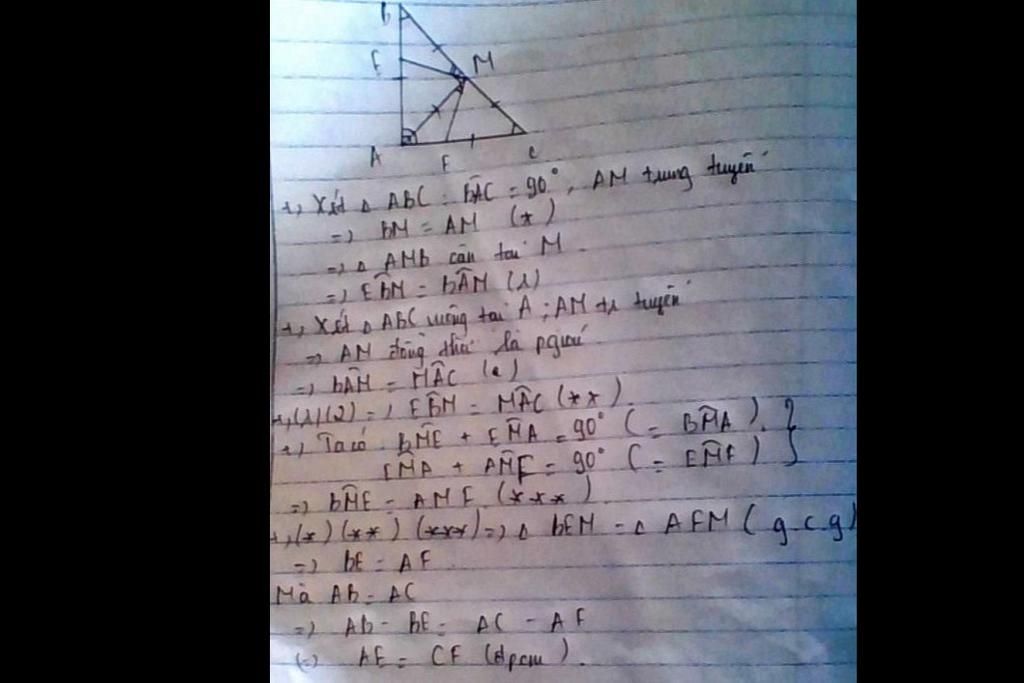 B
E
M
A
F
C
+, Xét Δ ABC : BÂC = 90°, AM trung tuyến
=) BM = AM (*)
=) Δ AMB cân tại M.
=) EB̂M = BÂM (1)
+, Xét Δ ABC vuông tại A ; AM tr tuyến
=) AM đồng thời là pgiác
=) BÂM = MÂC (2)
+, (1)(2) =) EB̂M = MÂC (**)
+) Ta có BM̂E + EM̂A = 90° ( = BM̂A ).
EM̂A + AM̂F = 90° ( = EM̂F )
=) BM̂E = AMF (***)
+, (*) (**) (***) =) Δ BEM = Δ AFM ( g.c.g)
=) BE = AF.
Mà AB = AC
=) AB - BE = AC - AF
(=) AE = CF (đpcm).